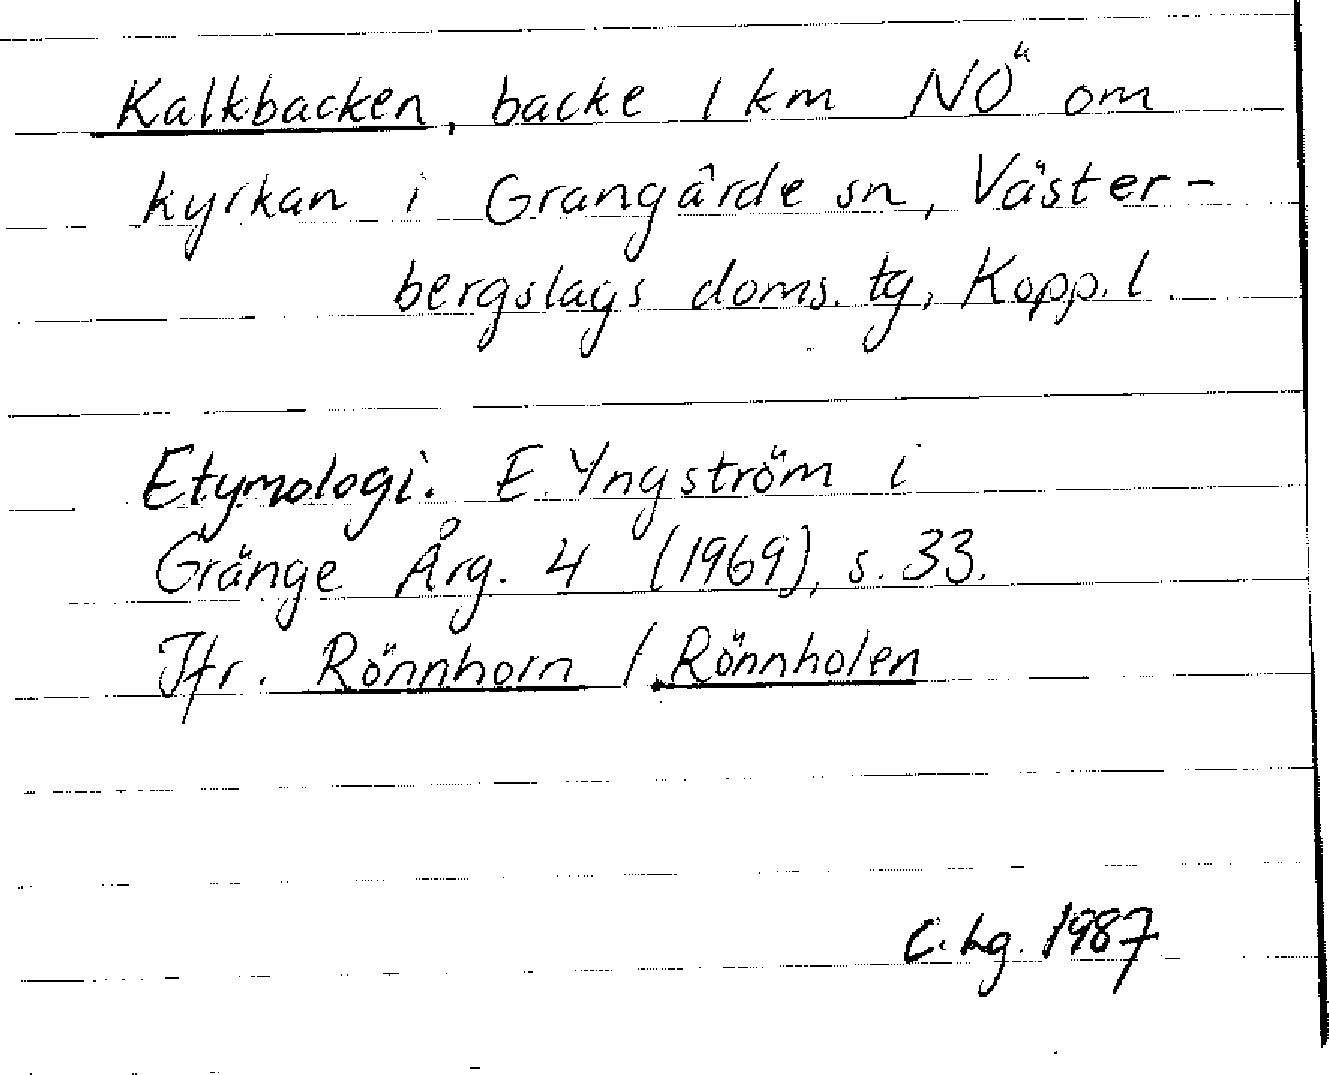 Kalkbacken, backe 1 km NÖ om
kyrkan i Grangärde sn, Väster-
bergslags doms. tg, Kopp. l.
Etymologi: E. Yngström i
Gränge Årg. 4 (1969), s. 33.
Jfr. Rönnhorn / Rönnholen
C. Lg. 1987